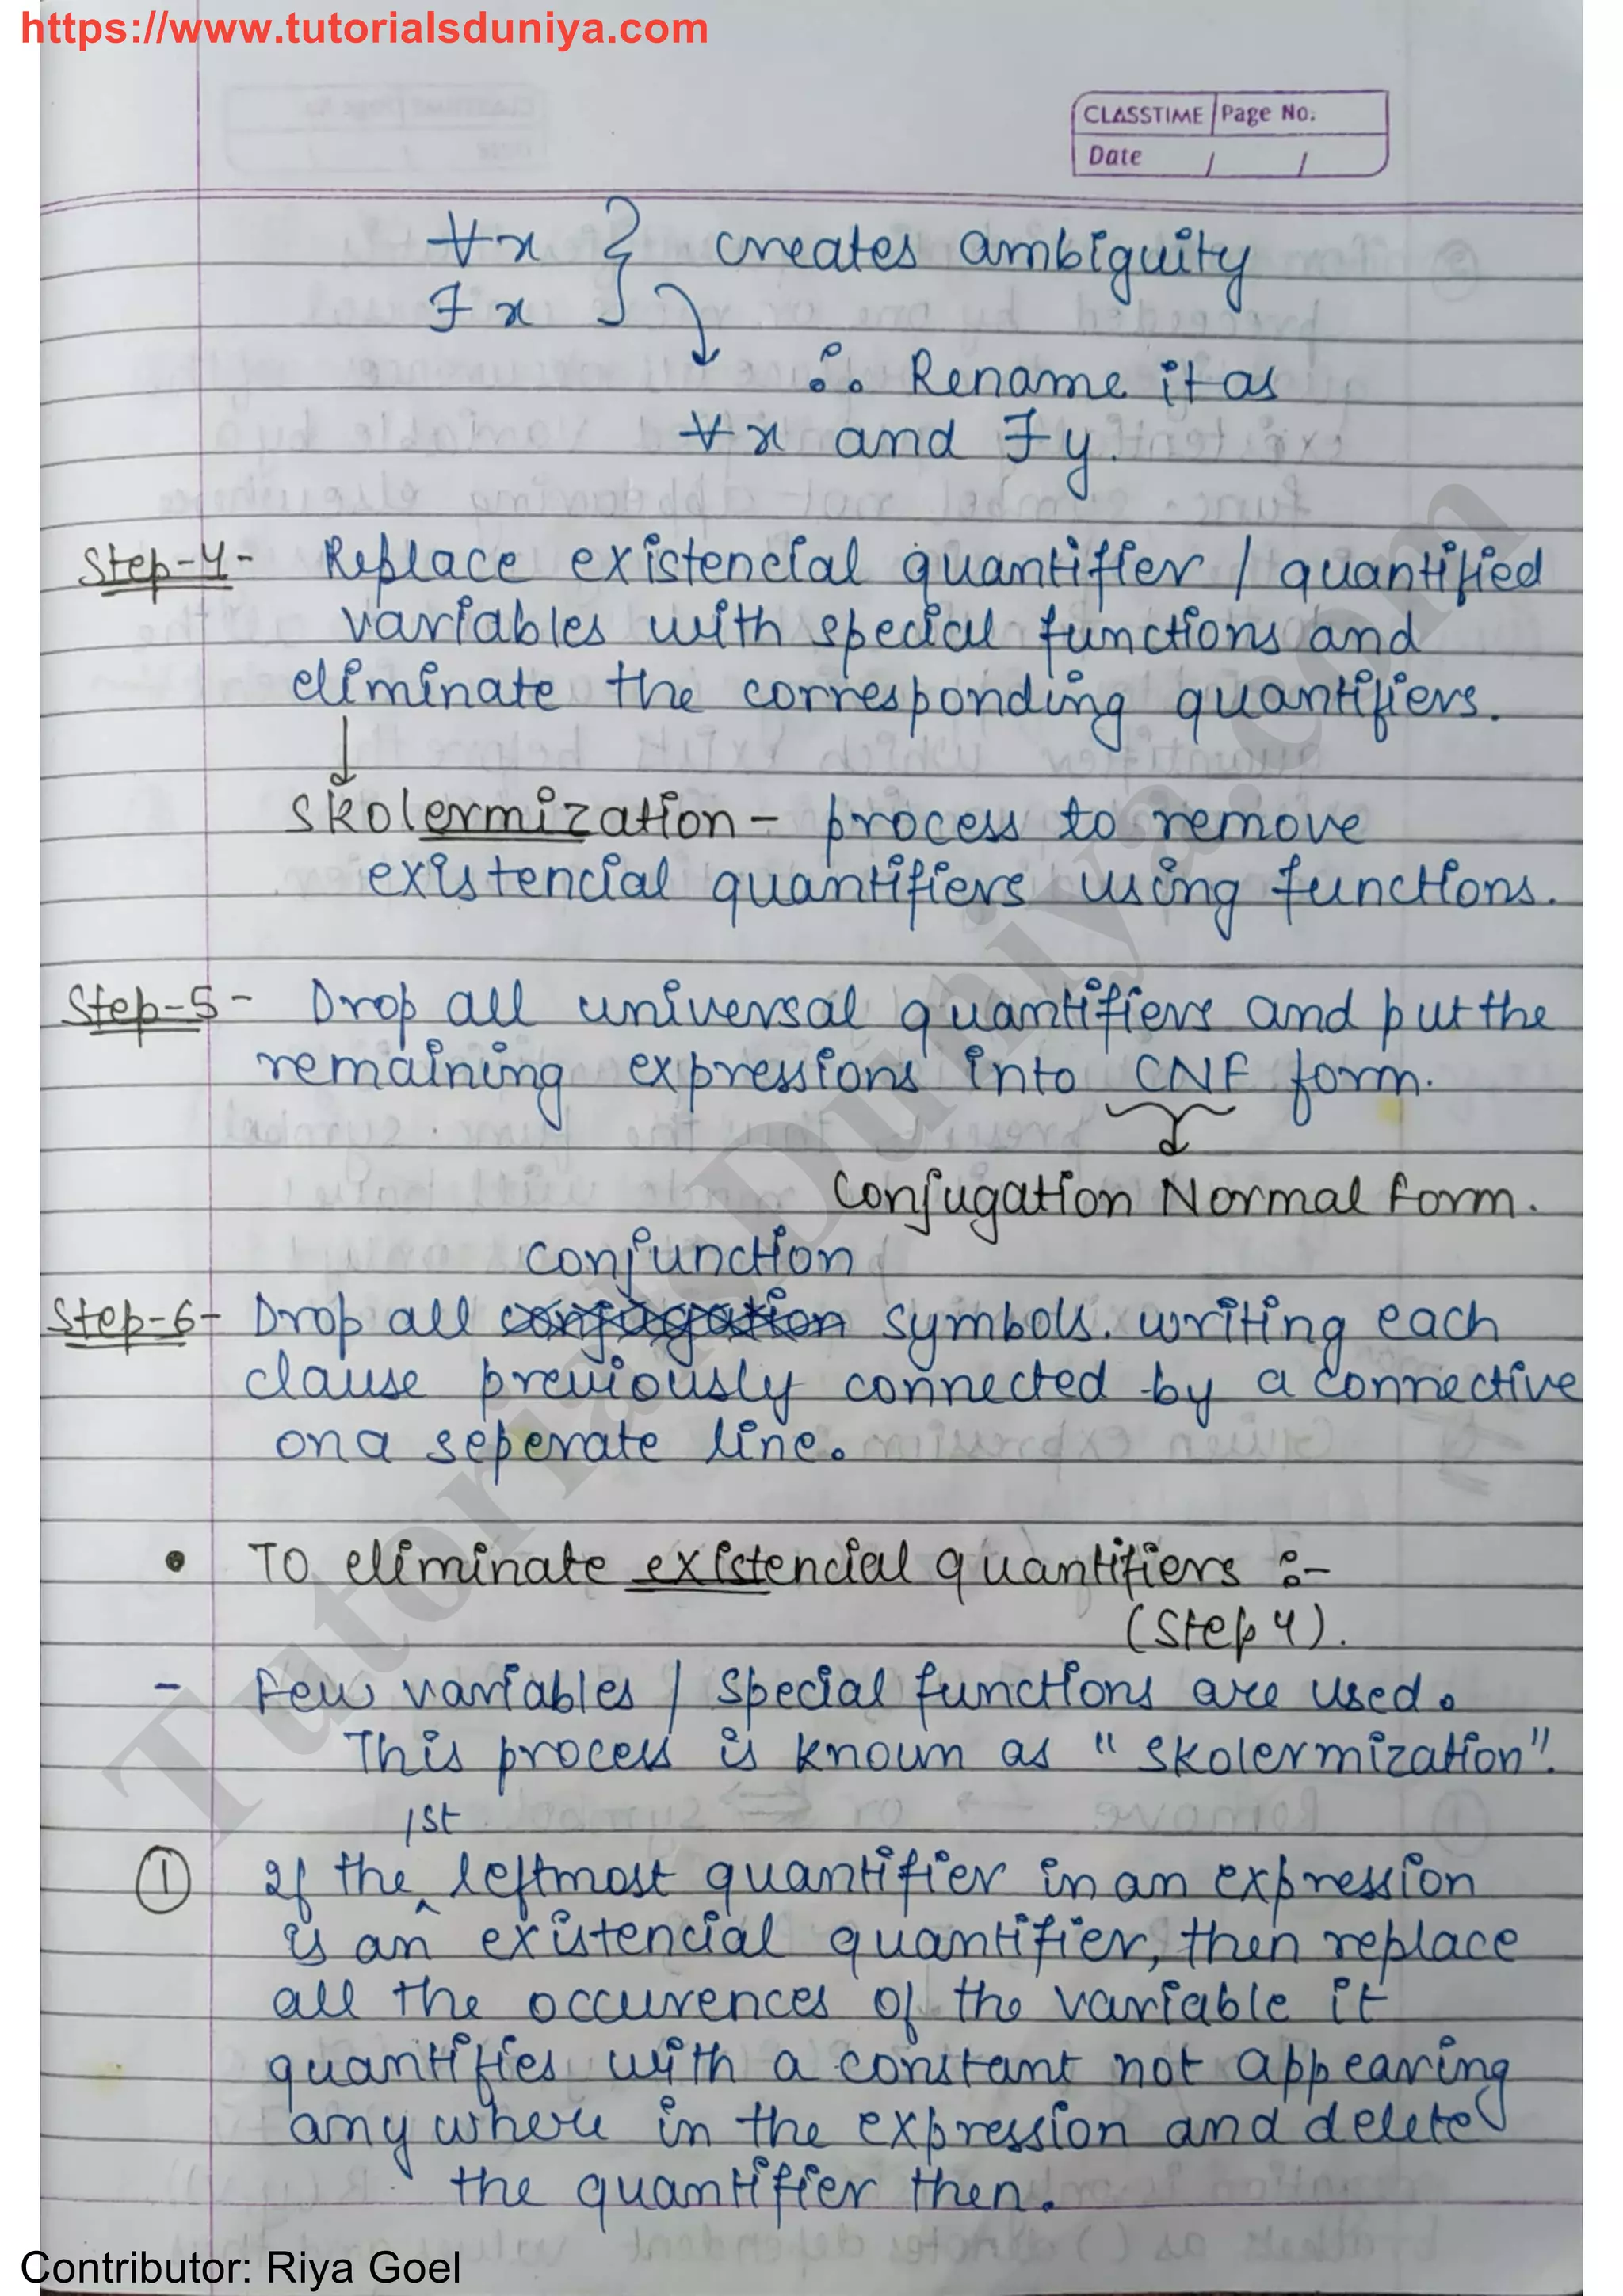 https://www.tutorialsduniya.com
CLASSTIME Page No.
Date / /
∀x } creates ambiguity
∃x
∴ Rename it as
∀x and ∃y.
Step-4- Replace existencial quantifier / quantified
variables with special functions and
eliminate the corresponding quantifiers.
Skolermization - process to remove
existencial quantifiers using functions.
Step-5- Drop all universal quantifiers and put the
remaining expressions into CNF form.
Conjugation Normal Form.
conjunction
Step-6- Drop all conjugation symbols. writing each
clause previously connected by a connective
on a seperate line.
• To eliminate existencial quantifiers :-
(Step 4).
- Few variables / special functions are used.
This process is known as "Skolermization".
1st
① If the leftmost quantifier in an expression
is an existencial quantifier, then replace
all the occurences of the variable it
quantifies with a constant not appearing
anywhere in the expression and delete
the quantifier then.
TutorialsDuniya.com
Contributor: Riya Goel